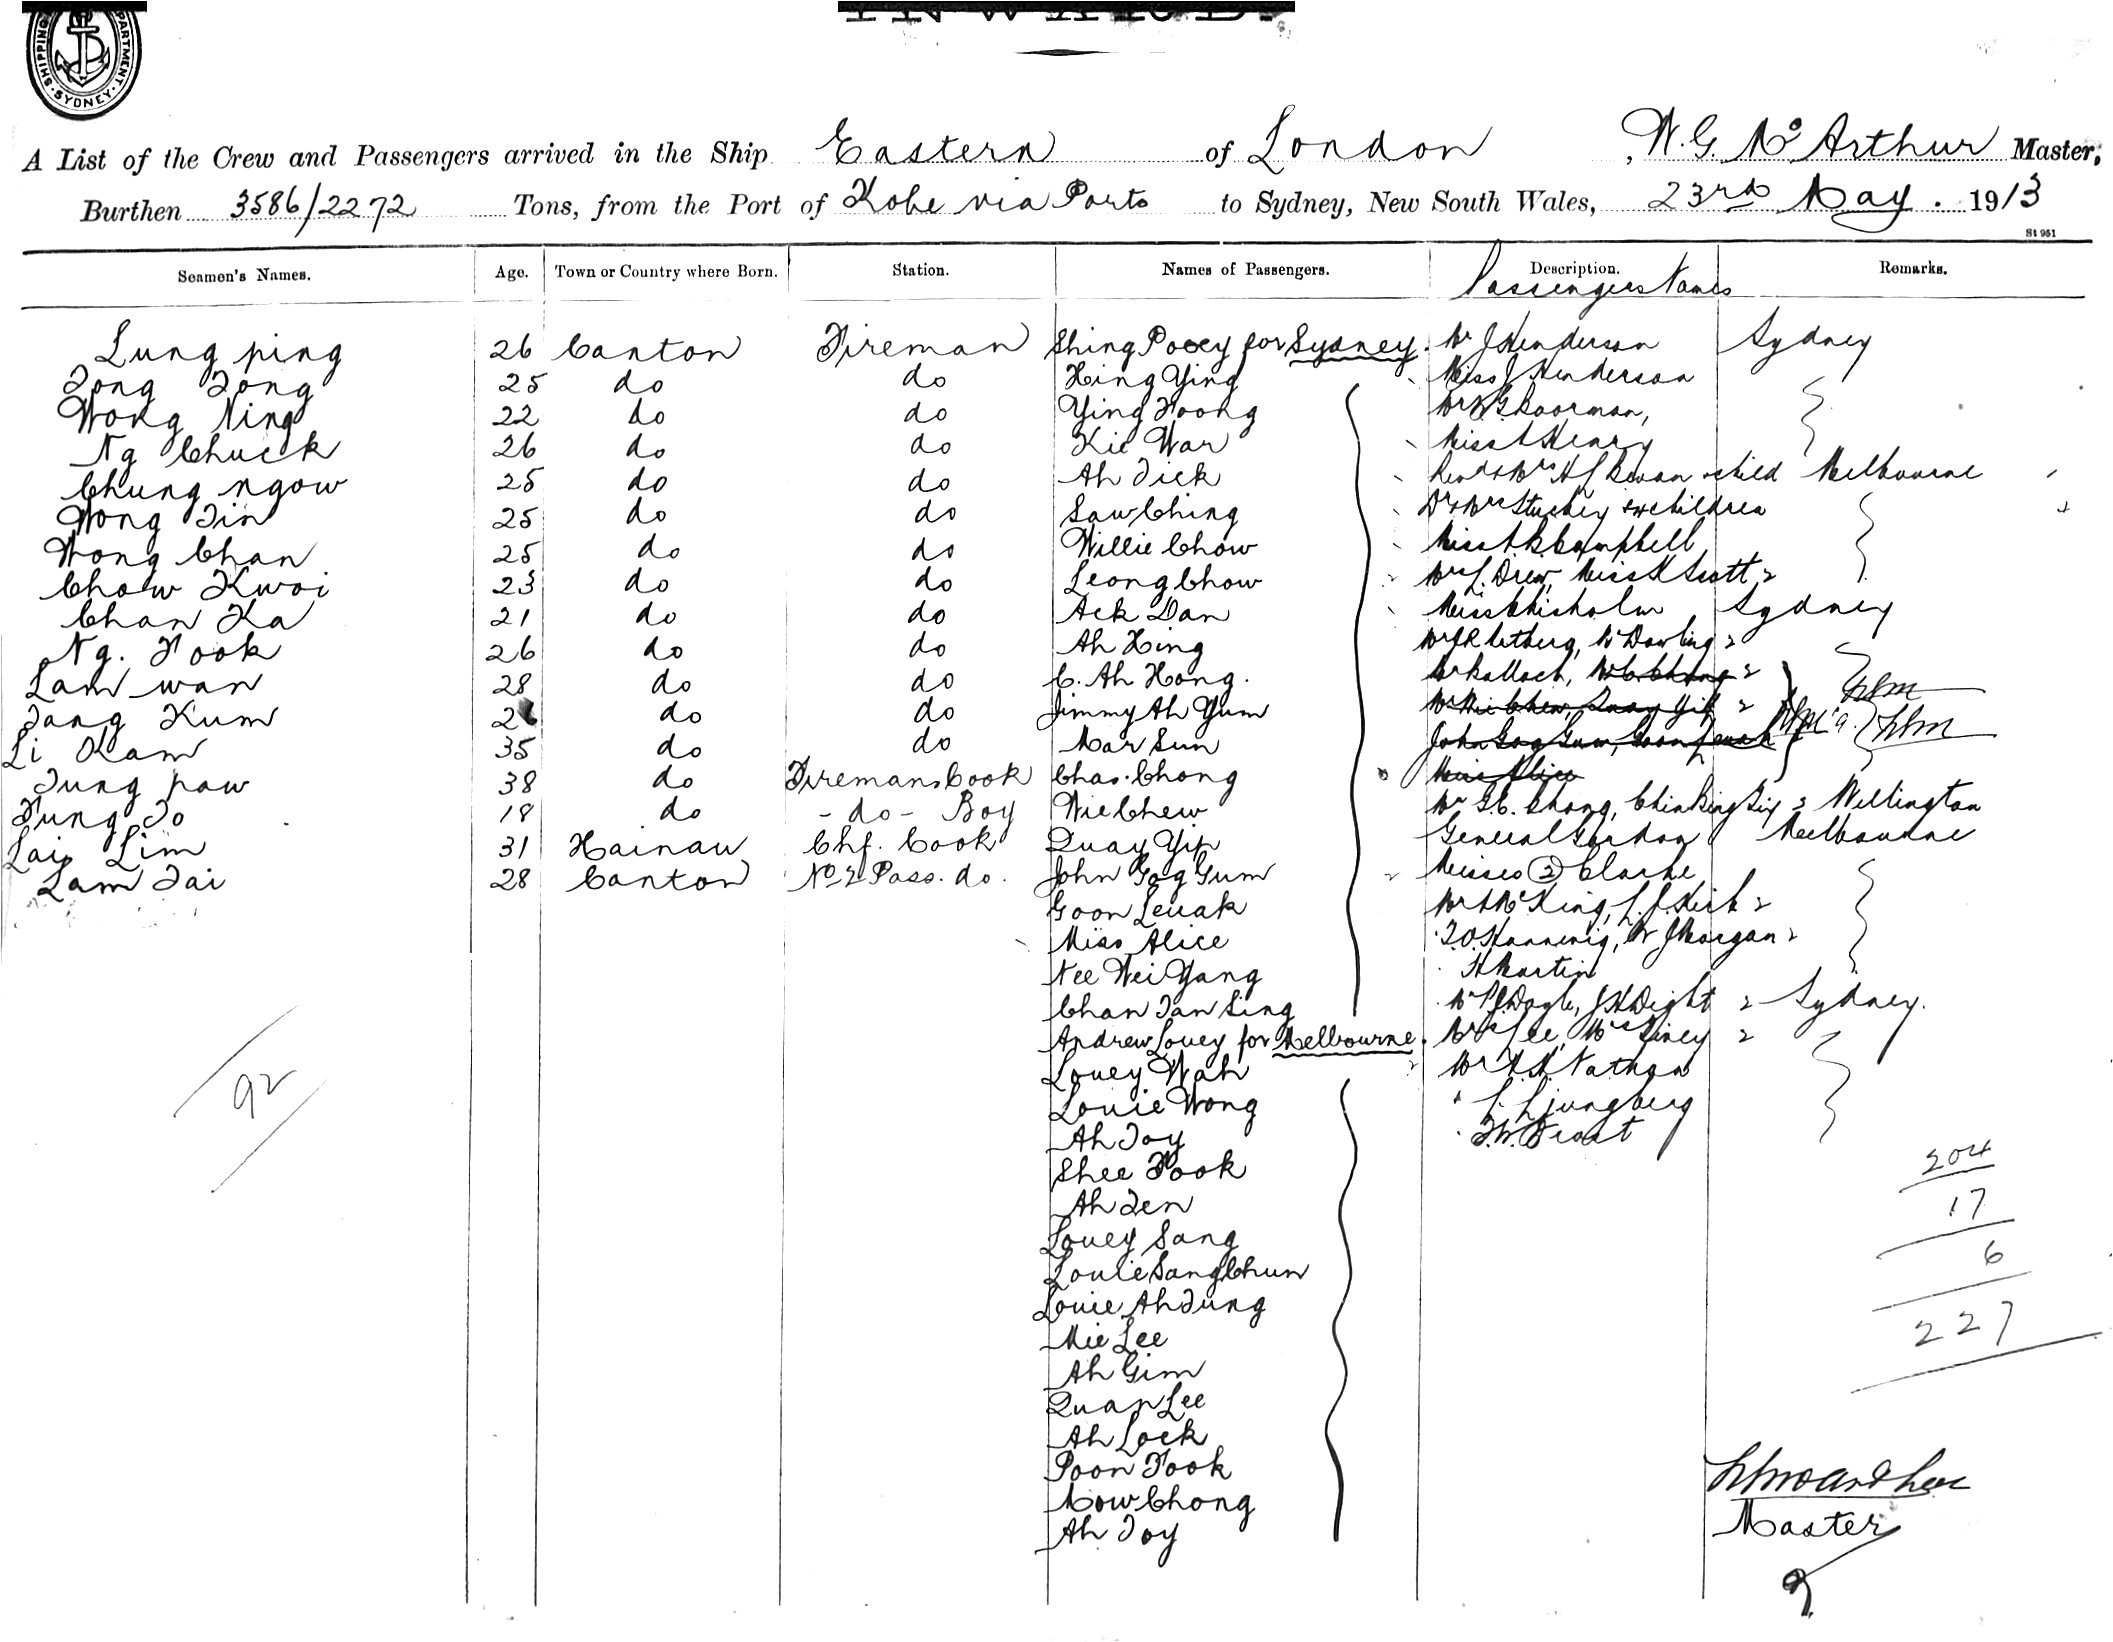 SHIPPING DEPARTMENT. SYDNEY.
INWARD.
A List of the Crew and Passengers arrived in the Ship Eastern of London, W. G. McArthur Master,
Burthen 3586/2272 Tons, from the Port of Kobe via Ports to Sydney, New South Wales, 23rd May. 1913
St 951
Seamen's Names. Age. Town or Country where Born. Station. Names of Passengers. Description. Remarks.
Passengers Names
Lung ping 26 Canton Fireman Shing Poey for Sydney. Mr J Henderson Sydney
Tong Tong 25 do do Hing Ying Miss J Henderson
Wong Ning 22 do do Ying Foong
Ng Chuck 26 do do Kie War Miss A Henry
Chung ngow 25 do do Ah Tick child Melbourne
Wong Tin 25 do do Saw Ching Dr & Mrs Stuckey & children
Wong Chan 25 do do Willie Chow Miss Campbell
Chow Kwoi 23 do do Leong Chow Mrs Drew, Miss K Scott
Chan Ka 21 do do Ack Dan Miss Chisholm Sydney
Ng. Fook 26 do do Ah Hing Mr Dowling
Lam wan 28 do do C. Ah Hong. C Chong
Tang Kum do do Jimmy Ah Yum Wie Chew, Quay Yip
Li Kam 35 do do Mar Sun John Gog Gum, Goon Leuak
Tung paw 38 do Firemans Cook Chas. Chong Miss Alice
Fung To 18 do - do - Boy Wie Chew Mr G. C. Chong, Wellington
Lai Lim 31 Hainau Chf. Cook Quay Yip General Gordon Melbourne
Lam Tai 28 Canton No 2 Pass. do. John Gog Gum Misses (2) Clarke
Goon Leuak
Miss Alice J Morgan
Nee Wei Yang H Martin
Chan Tan Sing Sydney.
Andrew Louey for Melbourne. Mrs Lee,
Louey Wah Nathan
Louie Wong L. Ljungberg
Ah Toy
Shee Fook
Ah Ten
Louey Sang
Louie Sang Chun
Louie Ah Tung
Mie Lee
Ah Gim
Quan Lee
Ah Lock
Poon Fook
Mow Chong
Ah Toy
92
204
17
6
227
Master